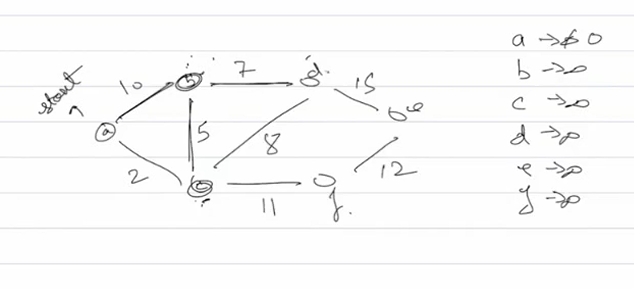 start
a
10
b
7
d
15
e
5
8
2
c
11
f
12
a → 0
b → ∞
c → ∞
d → ∞
e → ∞
f → ∞